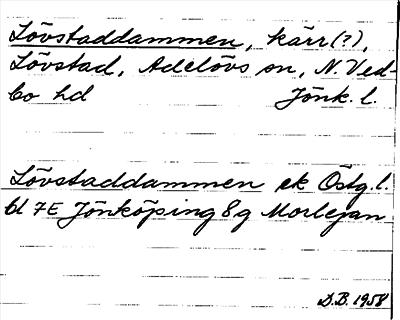 Lövstaddammen, kärr(?),
Lövstad, Adelövs sn, N. Ved-
bo hd Jönk. l.
Lövstaddammen ek Östg. l.
bl 7E Jönköping 8g Morlejan
D.B. 1958